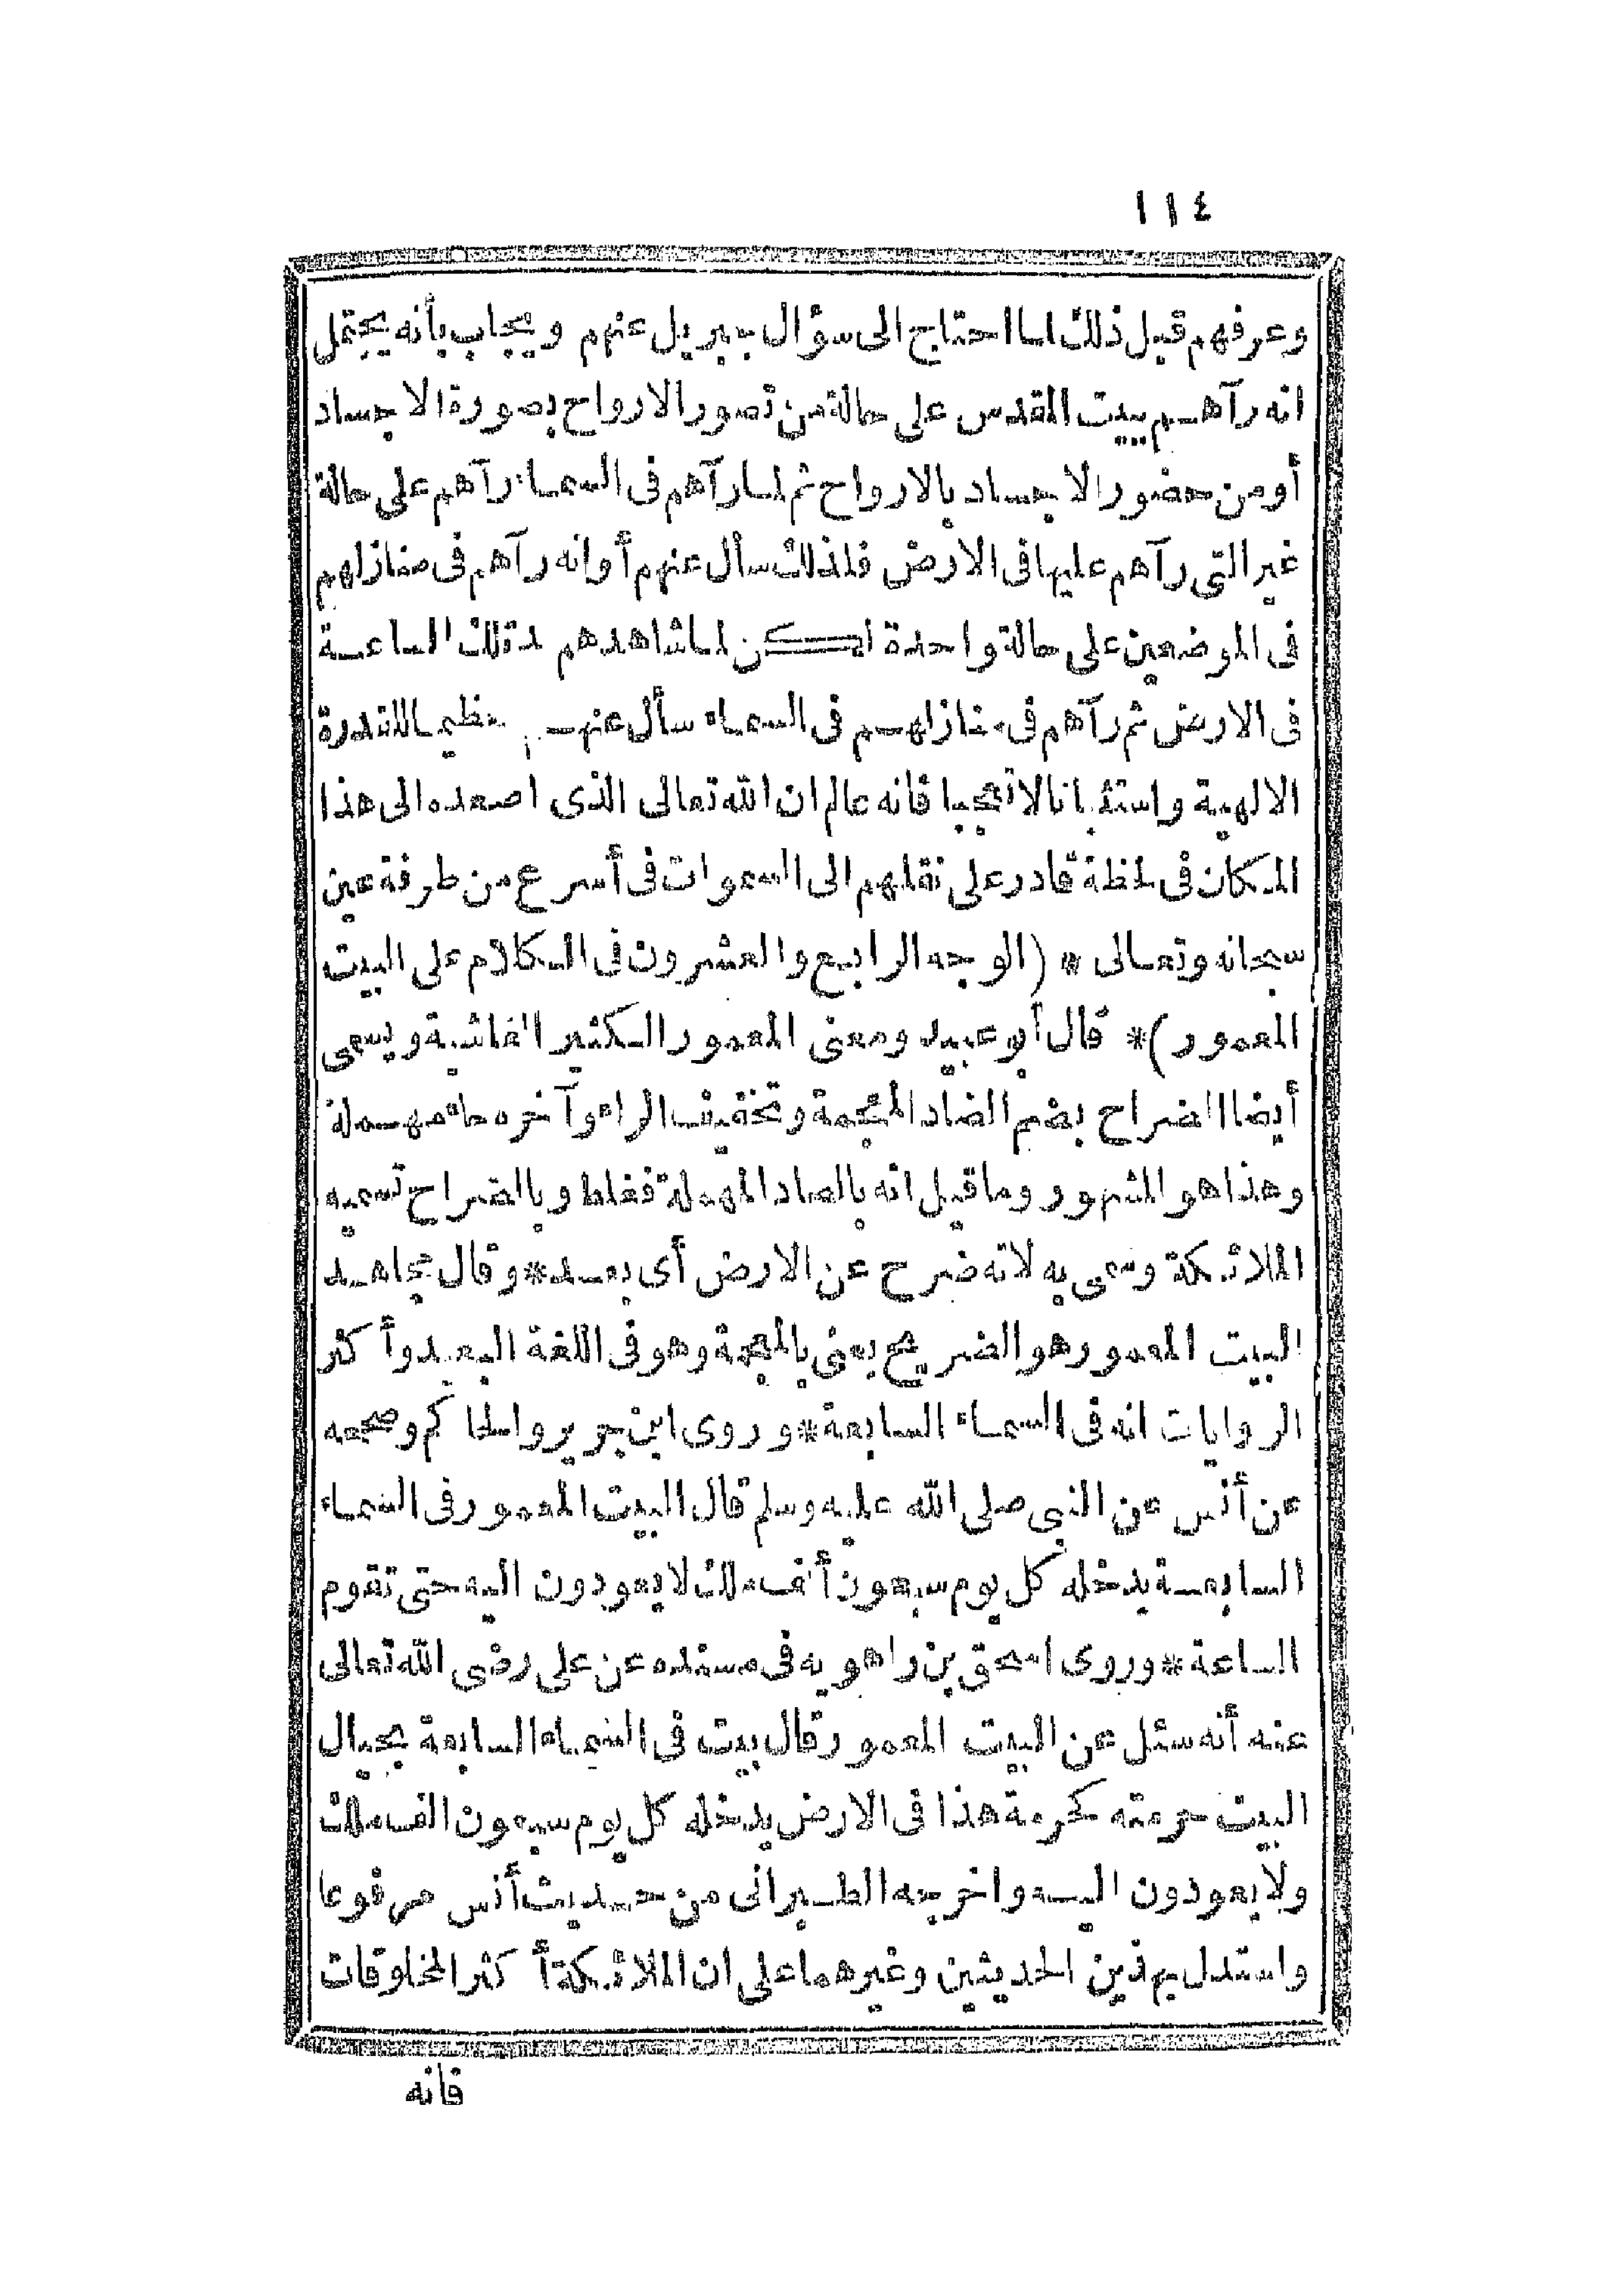 ١١٤
وعرفهم قبل ذلك لما احتاج الى سؤال جبريل عنهم ويجاب بأنه يحتمل
انه رآهم ببيت المقدس على حالة من تصور الارواح بصورة الاجساد
أو من حضور الاجساد بالارواح ثم لما رآهم فى السماء رآهم على حالة
غير التى رآهم عليها فى الارض فلذلك سأل عنهم أو انه رآهم فى منازلهم
فى الموضعين على حالة واحدة لكن لما شاهدهم تلك الساعة
فى الارض ثم رآهم فى منازلهم فى السماء سأل عنهم تعظيما للقدرة
الالهية واستثباتا لا تعجبا فانه عالم ان الله تعالى الذى اصعده الى هذا
المكان فى لحظة قادر على نقلهم الى السموات فى أسرع من طرفة عين
سبحانه وتعالى * (الوجه الرابع والعشرون فى الكلام على البيت
المعمور) * قال أبو عبيد ومعنى المعمور الكثير الغاشية ويسمى
أيضا الضراح بضم الضاد المعجمة وتخفيف الراء وآخره حاء مهملة
وهذا هو المشهور وما قيل انه بالصاد المهملة فغلط وبالضراح تسميه
الملائكة وسمى به لانه ضرح عن الارض أى بعد * وقال مجاهد
البيت المعمور هو الضريح يعنى بالمعجمة وهو فى اللغة البعيد وأكثر
الروايات انه فى السماء السابعة * وروى ابن جرير والحاكم وصححه
عن أنس عن النبى صلى الله عليه وسلم قال البيت المعمور فى السماء
السابعة يدخله كل يوم سبعون ألف ملك لا يعودون اليه حتى تقوم
الساعة * وروى اسحق بن راهويه فى مسنده عن على رضى الله تعالى
عنه أنه سئل عن البيت المعمور قال بيت فى السماء السابعة بحيال
البيت حرمته كحرمة هذا فى الارض يدخله كل يوم سبعون الف ملك
ولا يعودون اليه واخرجه الطبرانى من حديث أنس مرفوعا
واستدل بهذين الحديثين وغيرهما على ان الملائكة أكثر المخلوقات
فانه